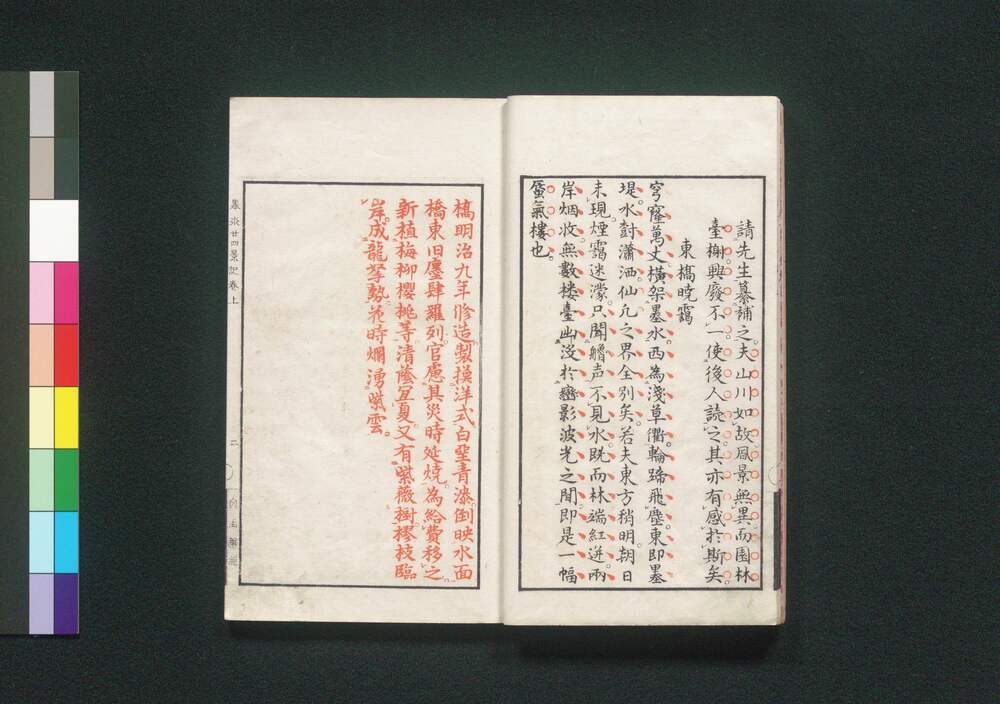 請先生纂補之夫山川如故風景無異而園林
臺榭興廢不一使後人読之其亦有感於斯矣
東橋暁靄
穹窿萬丈橫架墨水西為淺草衢輪蹄飛塵東即墨
堤水對瀟洒仙凡之界全別矣若夫東方稍明朝日
未現煙靄迷濛只聞艪声不見水既而林端紅迸兩
岸烟收無數楼臺出没於巒影波光之間即是一幅
蜃氣樓也
橋明治九年修造製模洋式白堊青漆倒映水面
橋東旧廛肆羅列官慮其災時延焼為給費移之
新植梅柳櫻桃等清蔭宜夏又有紫薇樹樛枝臨
岸成龍拏勢花時爛湧紫雲
墨水廿四景記卷上
二